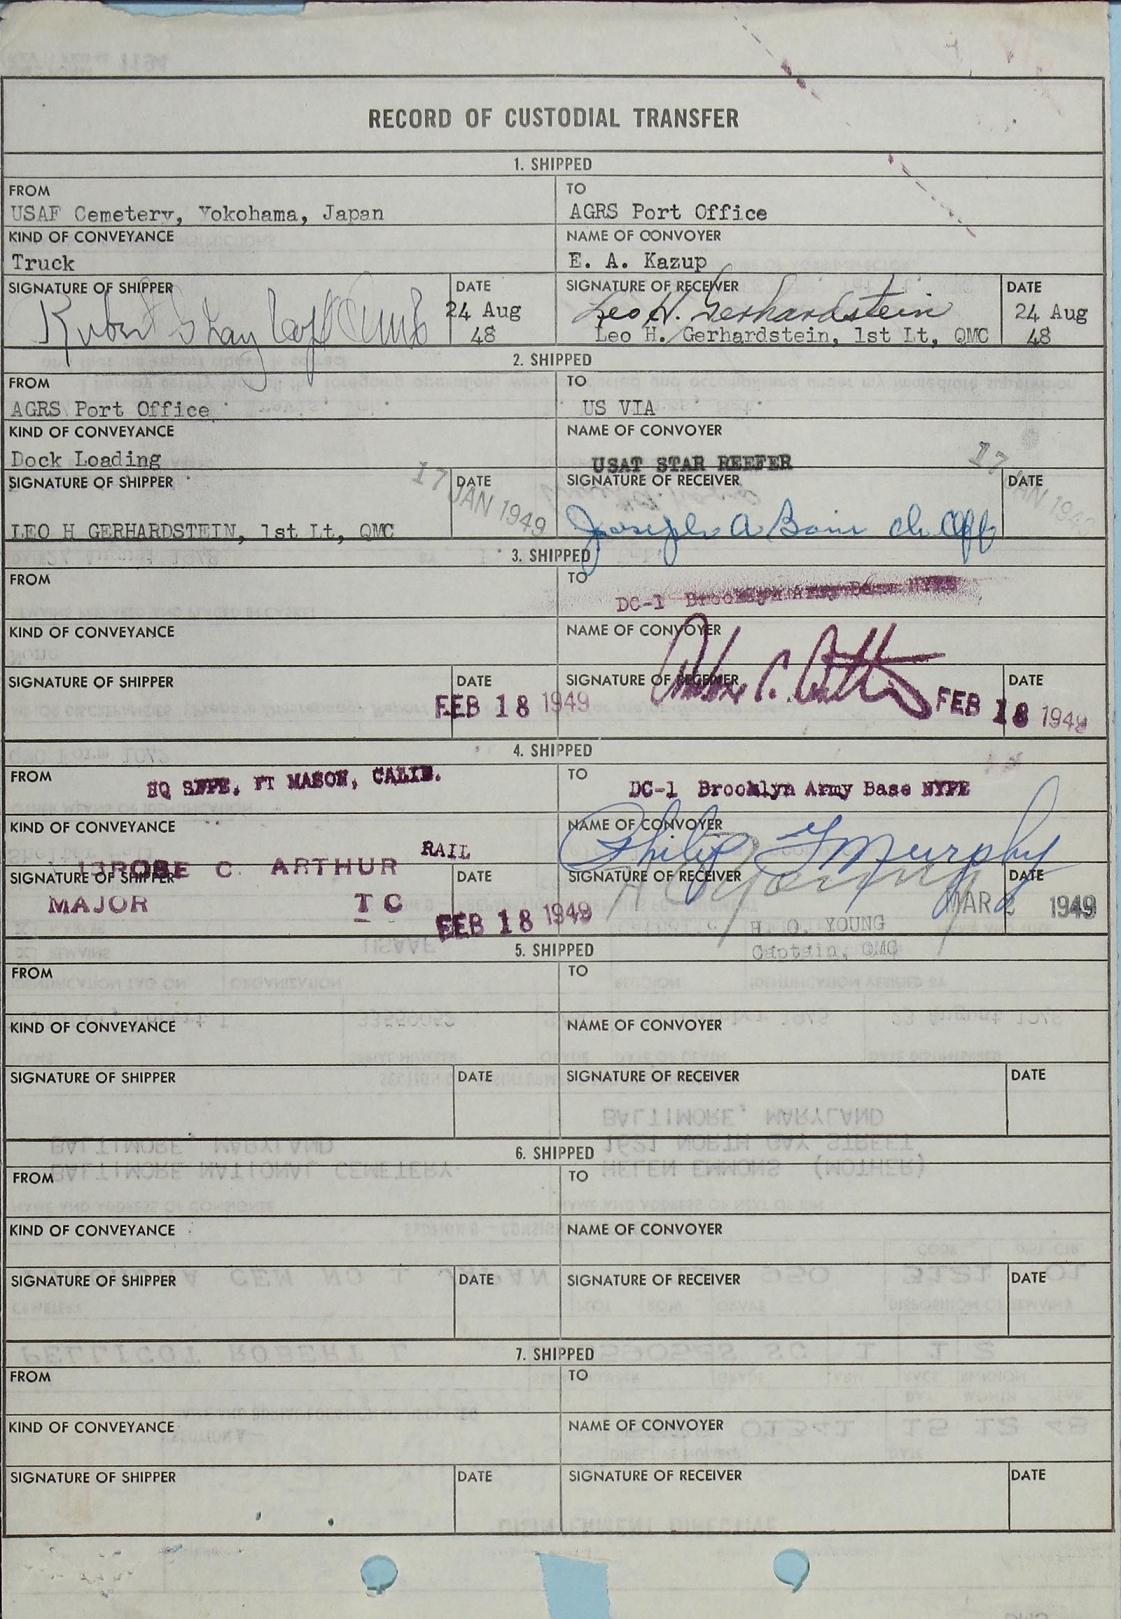 RECORD OF CUSTODIAL TRANSFER
1. SHIPPED
FROM
USAF Cemetery, Yokohama, Japan
TO
AGRS Port Office
KIND OF CONVEYANCE
Truck
NAME OF CONVOYER
E. A. Kazup
SIGNATURE OF SHIPPER
DATE
24 Aug
48
SIGNATURE OF RECEIVER
Leo H. Gerhardstein
Leo H. Gerhardstein, 1st Lt, QMC
DATE
24 Aug
48
2. SHIPPED
FROM
AGRS Port Office
TO
US VIA
KIND OF CONVEYANCE
Dock Loading
NAME OF CONVOYER
USAT STAR REEFER
SIGNATURE OF SHIPPER
LEO H GERHARDSTEIN, 1st Lt, QMC
DATE
17 JAN 1949
SIGNATURE OF RECEIVER
Joseph A
DATE
17 JAN 194
3. SHIPPED
FROM
TO
DC-1 Brooklyn Army Base NYPE
KIND OF CONVEYANCE
NAME OF CONVOYER
SIGNATURE OF SHIPPER
DATE
FEB 18 1949
SIGNATURE OF RECEIVER
DATE
FEB 18 1949
4. SHIPPED
FROM
HQ SFPE, FT MASON, CALIF.
TO
DC-1 Brooklyn Army Base NYPE
KIND OF CONVEYANCE
RAIL
NAME OF CONVOYER
Philip F Murphy
SIGNATURE OF SHIPPER
C. ARTHUR
MAJOR TC
DATE
FEB 18 1949
SIGNATURE OF RECEIVER
H O Young
H. O. YOUNG
Captain, QMC
DATE
MAR 2 1949
5. SHIPPED
FROM
TO
KIND OF CONVEYANCE
NAME OF CONVOYER
SIGNATURE OF SHIPPER
DATE
SIGNATURE OF RECEIVER
DATE
6. SHIPPED
FROM
TO
KIND OF CONVEYANCE
NAME OF CONVOYER
SIGNATURE OF SHIPPER
DATE
SIGNATURE OF RECEIVER
DATE
7. SHIPPED
FROM
TO
KIND OF CONVEYANCE
NAME OF CONVOYER
SIGNATURE OF SHIPPER
DATE
SIGNATURE OF RECEIVER
DATE